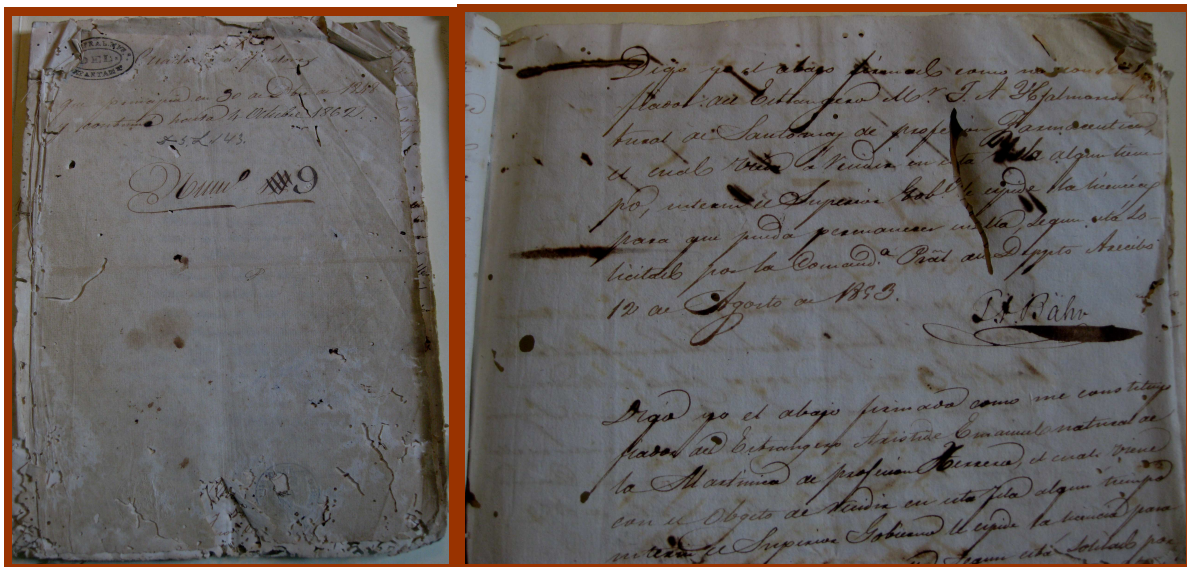 que principia en 30 de
y continua hasta 4 Octubre 1862
Num.º 9
Digo yo el abajo firmado como me constituyo
fiador del Estrangero Mr. T. A. Hjalmarson
tural de Santomas de profesion Farmaceutico,
el cual viene a recidir en esta Isla algun tiem-
po, interin el Superior Gob.º le espide la licencia
para que pueda permanecer en ella, segun está so-
licitado por la Comand.ª Pral. del Deppto Arecibo
12 de Agosto de 1853.
Bähr
Digo yo el abajo firmado como me constituyo
fiador del Estrangero Aristide Emanuel natural de
la Martinica de profesion Herrero, el cual viene
con el Obgeto de recidir en esta Isla algun tiempo
interin el Superior Gobierno le espide la licencia para
segun está solicitado por